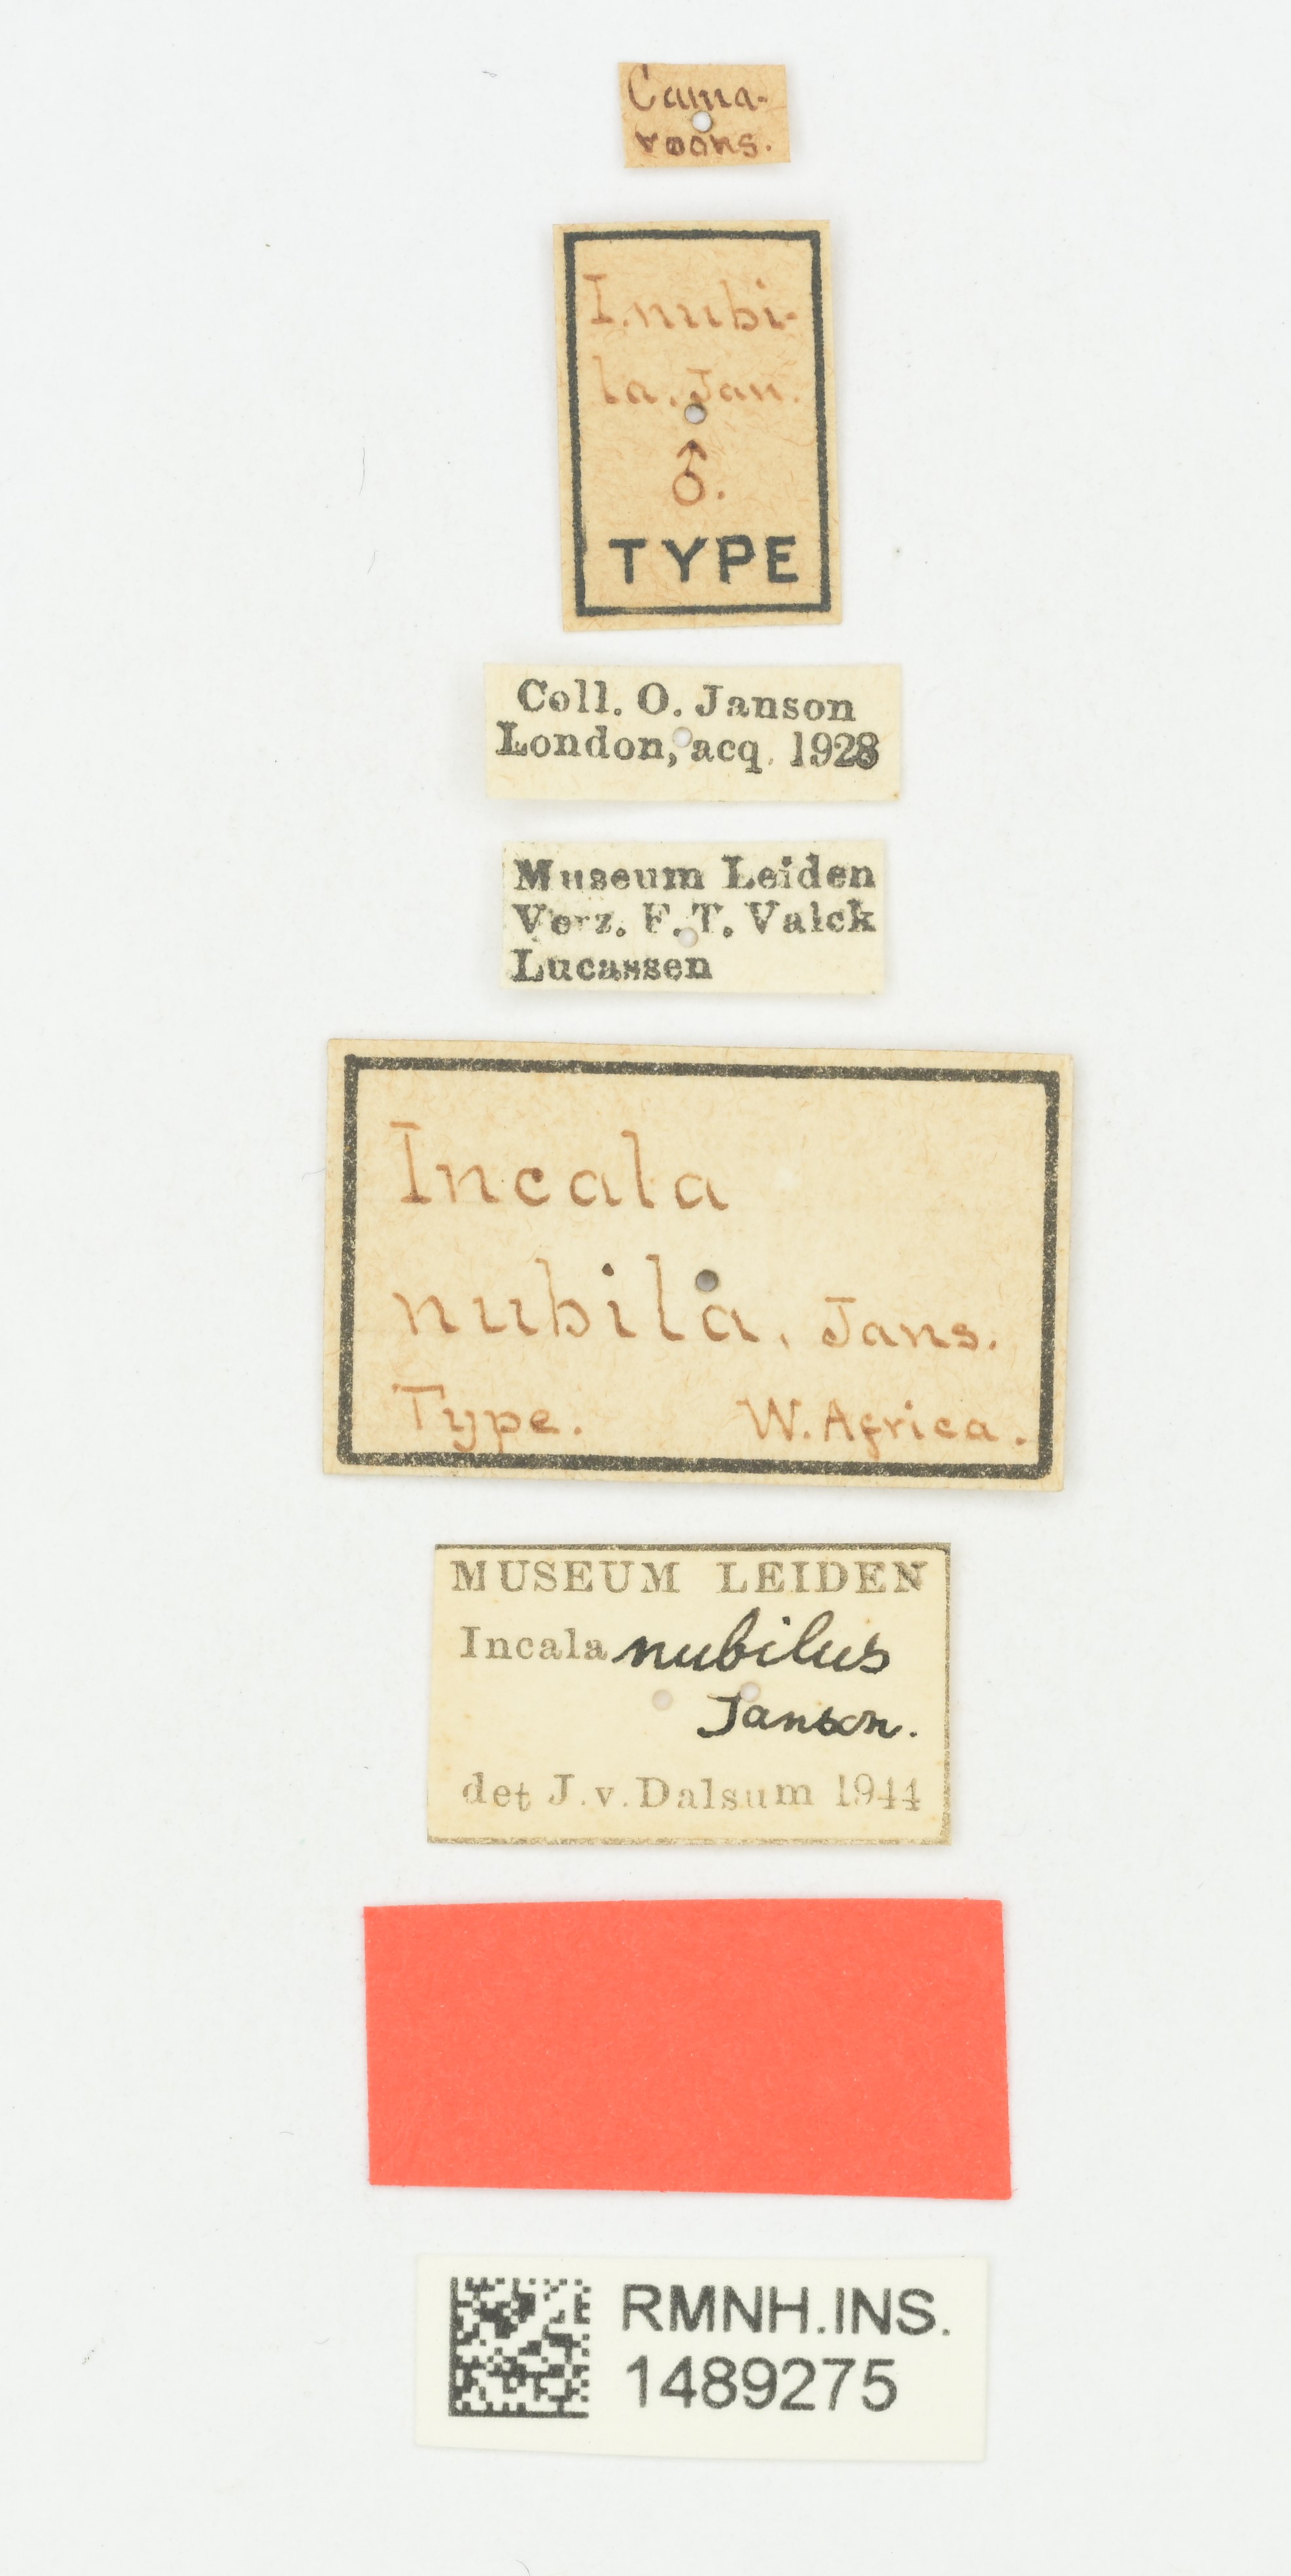 Cama-
roons.
I. nubi-
la. Jan.
♂.
TYPE
Coll. O. Janson
London, acq. 1928
Museum Leiden
Verz. F. T. Valck
Lucassen
Incala
nubila, Jans.
Type. W. Africa.
MUSEUM LEIDEN
Incala nubilus
Janson.
det J. v. Dalsum 1944
RMNH.INS.
1489275